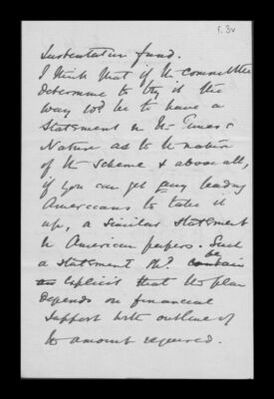 f. 3v
Sustentation fund.
I think that if the committee
determine to try it the
way wd. be to have a
statement in the Times &
Nature as to the nature
of the scheme & above all,
if you can get any leading
Americans to take it
up, a similar statement
in American papers. Such
a statement shd. contain be
an explicit that the plan
depends on financial
support with outline of
the amount required.